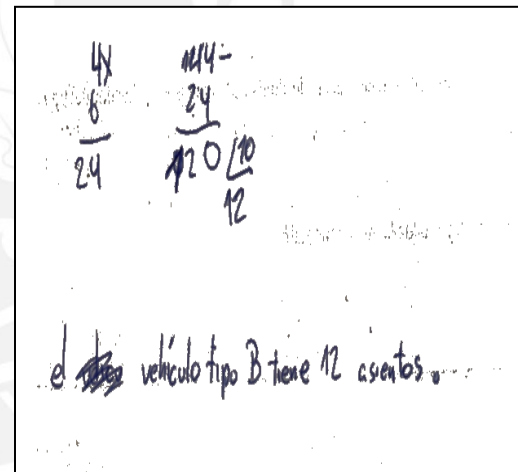 4x 144-
6 24
24 120 10
12
el vehículo tipo B tiene 12 asientos.